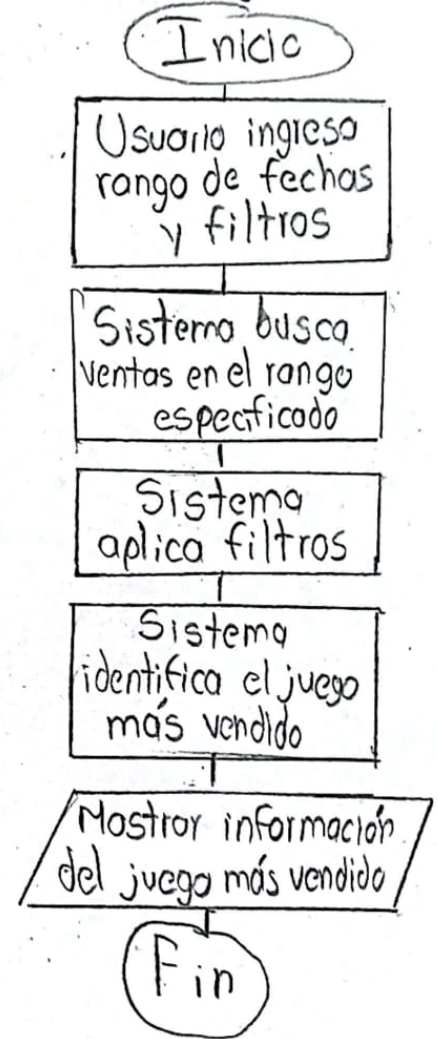 Inicio
Usuario ingresa
rango de fechas
y filtros
Sistema busca
ventas en el rango
especificado
Sistema
aplica filtros
Sistema
identifica el juego
más vendido
Mostrar información
del juego más vendido
Fin